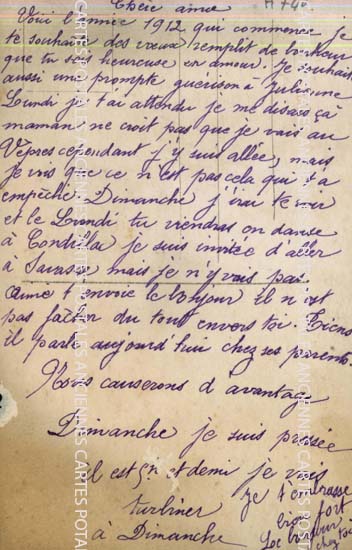 Chère amie
Voici l'année 1912 qui commence je
te souhaite des vœux remplit de bonheur
que tu sois heureuse en amour. Je souhaite
aussi une prompte guérison à Julienne
Lundi je t'ai attendu je me disais ça
maman ne croit pas que je vais au
Vêpres cependant j'y suis allée, mais
je vois que ce n'est pas cela qui t'a
empêché Dimanche j'irai te voir
et le Lundi tu viendras on danse
à Condillac je suis invitée d'aller
à Sauzet mais je n'y vais pas.
Aimé t'envoie le bonjour il n'est
pas fâcher du tout envers toi. Tiens
il part aujourd'hui chez ses parents.
Nous causerons d'avantage
Dimanche je suis pressée
il est 5h et demi je vais
turbiner Je t'embrasse
bien fort
à Dimanche Le bonjour
chez toi